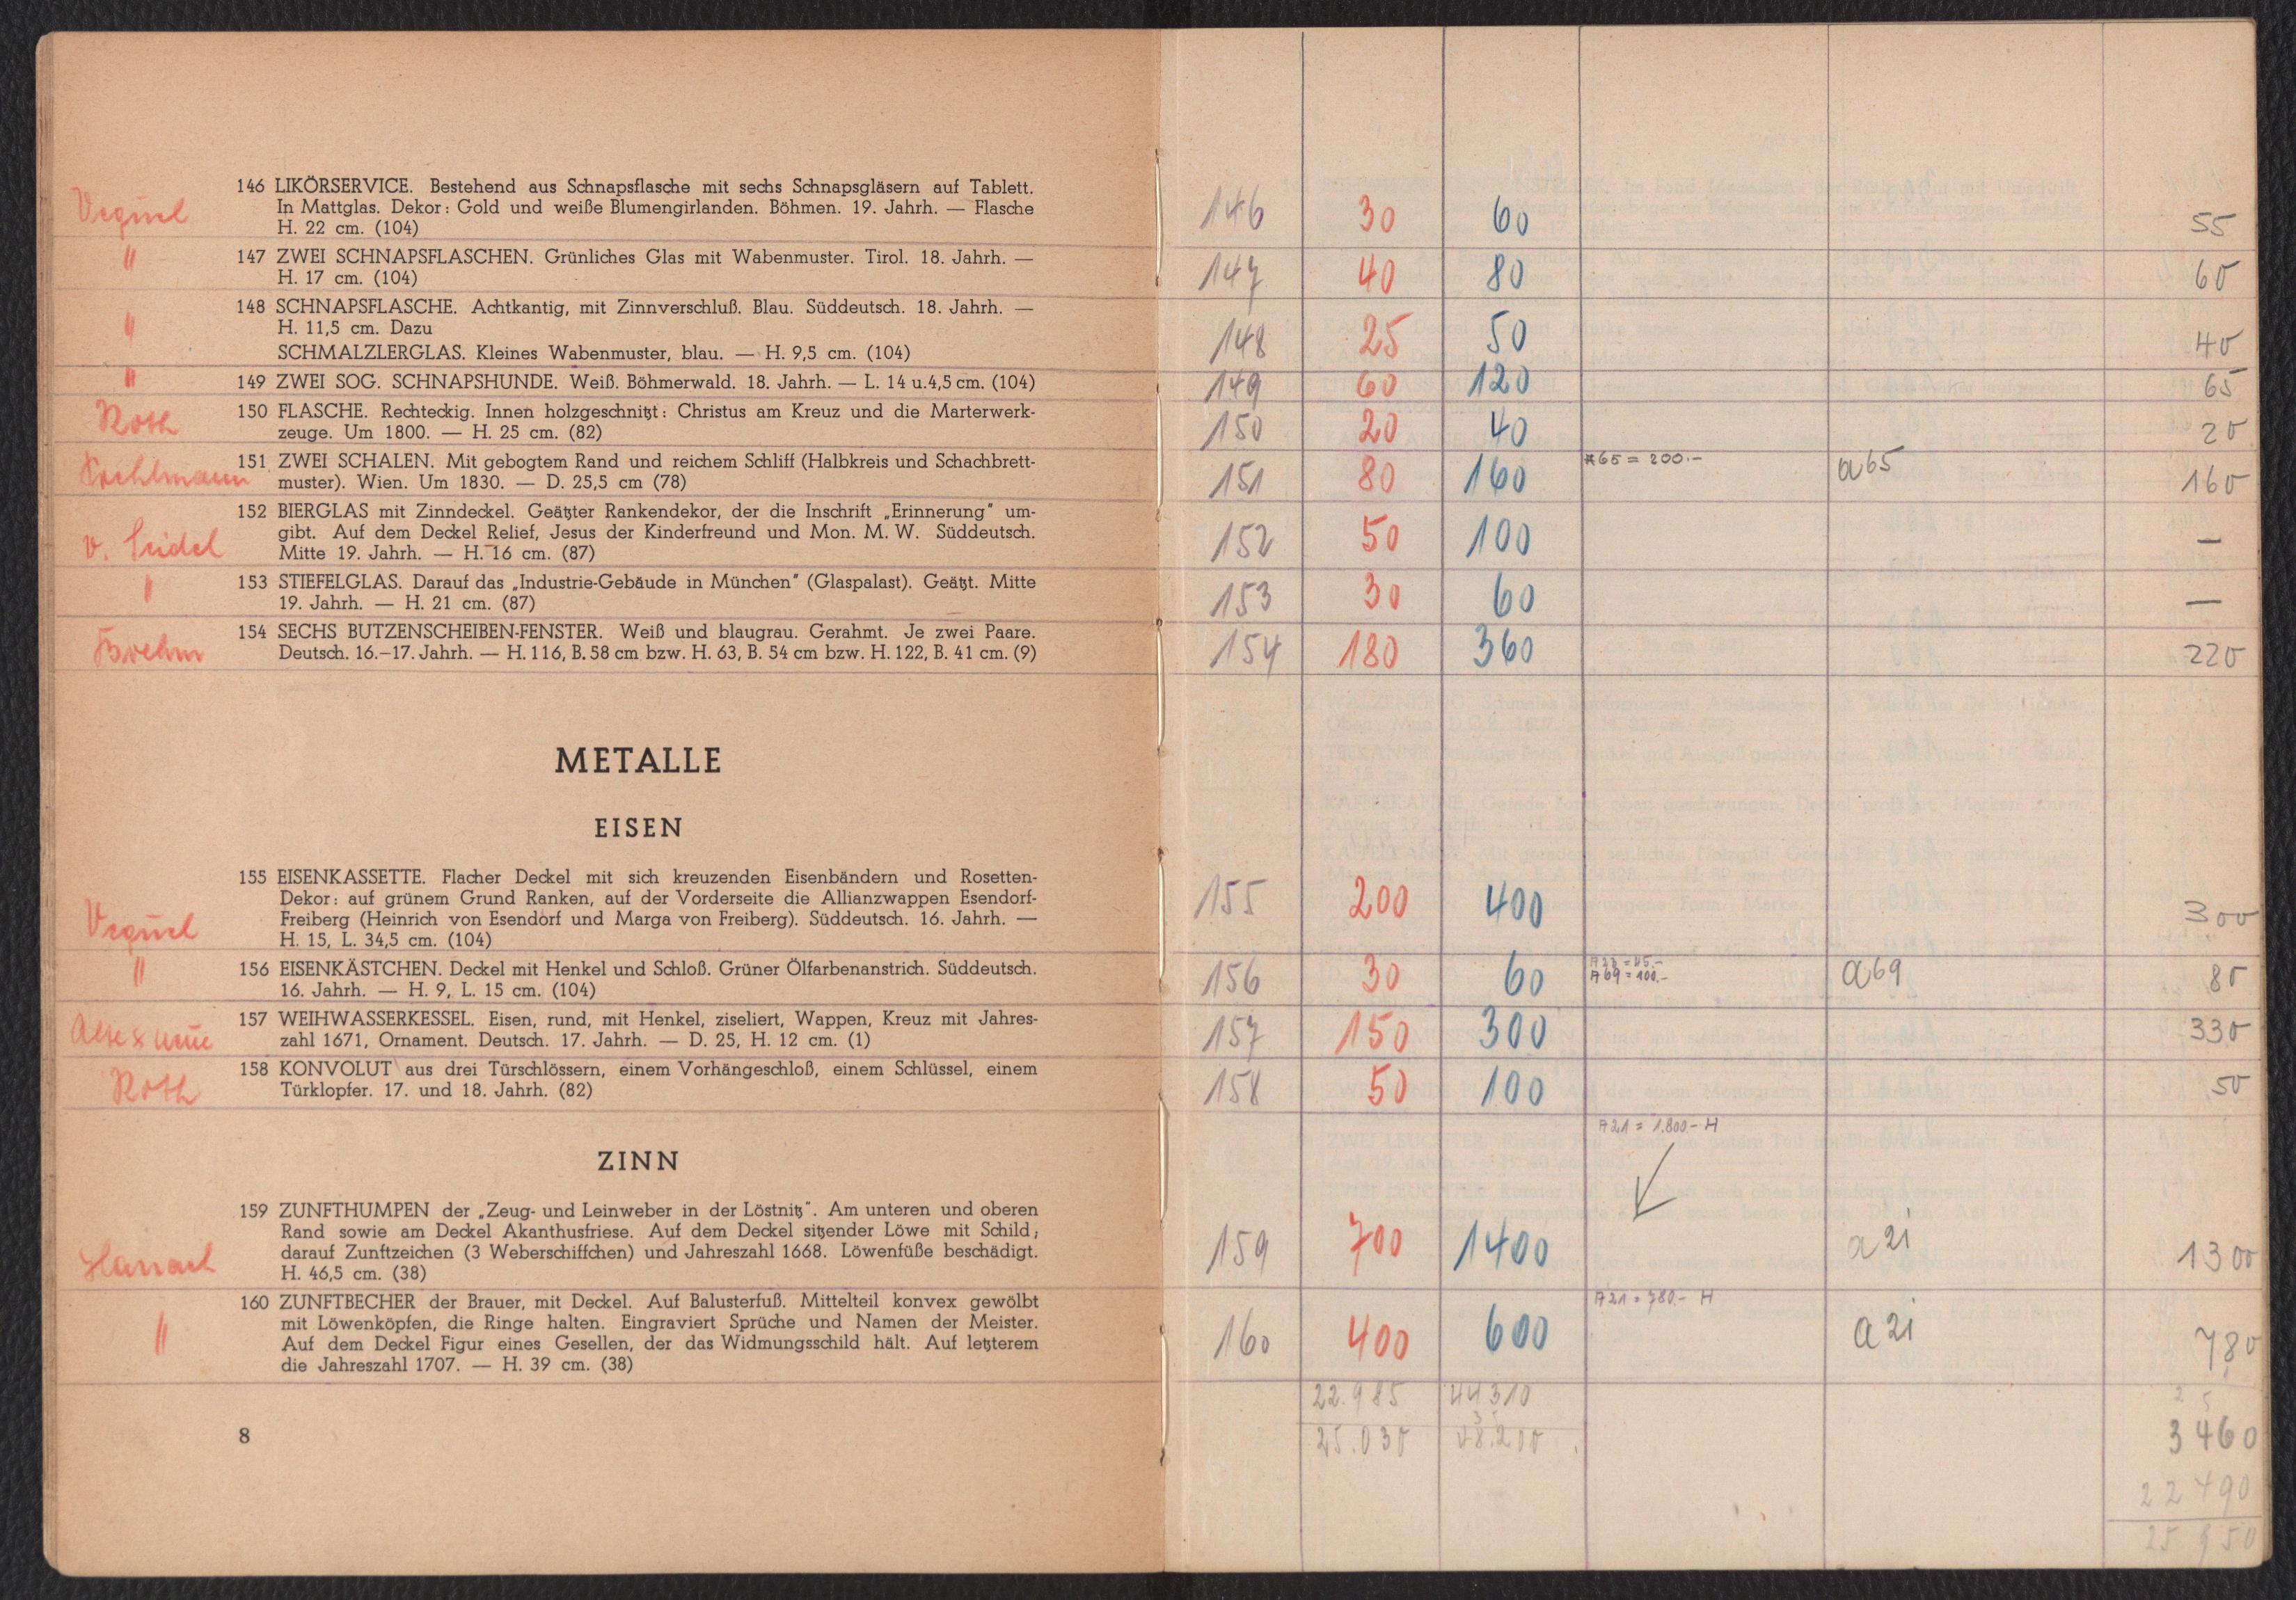 Vequel
146 LIKÖRSERVICE. Bestehend aus Schnapsflasche mit sechs Schnapsgläsern auf Tablett.
In Mattglas. Dekor: Gold und weiße Blumengirlanden. Böhmen. 19. Jahrh. — Flasche
H. 22 cm. (104)
"
147 ZWEI SCHNAPSFLASCHEN. Grünliches Glas mit Wabenmuster. Tirol. 18. Jahrh. —
H. 17 cm. (104)
"
148 SCHNAPSFLASCHE. Achtkantig, mit Zinnverschluß. Blau. Süddeutsch. 18. Jahrh. —
H. 11,5 cm. Dazu
SCHMALZLERGLAS. Kleines Wabenmuster, blau. — H. 9,5 cm. (104)
"
149 ZWEI SOG. SCHNAPSHUNDE. Weiß. Böhmerwald. 18. Jahrh. — L. 14 u. 4,5 cm. (104)
Roth
150 FLASCHE. Rechteckig. Innen holzgeschnitzt: Christus am Kreuz und die Marterwerk-
zeuge. Um 1800. — H. 25 cm. (82)
151 ZWEI SCHALEN. Mit gebogtem Rand und reichem Schliff (Halbkreis und Schachbrett-
muster). Wien. Um 1830. — D. 25,5 cm (78)
v. Seidel
152 BIERGLAS mit Zinndeckel. Geätzter Rankendekor, der die Inschrift „Erinnerung" um-
gibt. Auf dem Deckel Relief, Jesus der Kinderfreund und Mon. M. W. Süddeutsch.
Mitte 19. Jahrh. — H. 16 cm. (87)
"
153 STIEFELGLAS. Darauf das „Industrie-Gebäude in München" (Glaspalast). Geätzt. Mitte
19. Jahrh. — H. 21 cm. (87)
Boehm
154 SECHS BUTZENSCHEIBEN-FENSTER. Weiß und blaugrau. Gerahmt. Je zwei Paare.
Deutsch. 16.–17. Jahrh. — H. 116, B. 58 cm bzw. H. 63, B. 54 cm bzw. H. 122, B. 41 cm. (9)
METALLE
EISEN
Vequel
155 EISENKASSETTE. Flacher Deckel mit sich kreuzenden Eisenbändern und Rosetten-
Dekor: auf grünem Grund Ranken, auf der Vorderseite die Allianzwappen Esendorf-
Freiberg (Heinrich von Esendorf und Marga von Freiberg). Süddeutsch. 16. Jahrh. —
H. 15, L. 34,5 cm. (104)
"
156 EISENKÄSTCHEN. Deckel mit Henkel und Schloß. Grüner Ölfarbenanstrich. Süddeutsch.
16. Jahrh. — H. 9, L. 15 cm. (104)
157 WEIHWASSERKESSEL. Eisen, rund, mit Henkel, ziseliert, Wappen, Kreuz mit Jahres-
zahl 1671, Ornament. Deutsch. 17. Jahrh. — D. 25, H. 12 cm. (1)
Roth
158 KONVOLUT aus drei Türschlössern, einem Vorhängeschloß, einem Schlüssel, einem
Türklopfer. 17. und 18. Jahrh. (82)
ZINN
Harrach
159 ZUNFTHUMPEN der „Zeug- und Leinweber in der Löstnitz". Am unteren und oberen
Rand sowie am Deckel Akanthusfriese. Auf dem Deckel sitzender Löwe mit Schild;
darauf Zunftzeichen (3 Weberschiffchen) und Jahreszahl 1668. Löwenfüße beschädigt.
H. 46,5 cm. (38)
"
160 ZUNFTBECHER der Brauer, mit Deckel. Auf Balusterfuß. Mittelteil konvex gewölbt
mit Löwenköpfen, die Ringe halten. Eingraviert Sprüche und Namen der Meister.
Auf dem Deckel Figur eines Gesellen, der das Widmungsschild hält. Auf letzterem
die Jahreszahl 1707. — H. 39 cm. (38)
8
146 30 60 55
147 40 80 60
148 25 50 40
149 60 120 65
150 20 40 20
151 80 160 A65 = 200.- a65 160
152 50 100 —
153 30 60 —
154 180 360 220
155 200 400 300
156 30 60 A69 = 100.- a69 80
157 150 300 330
158 50 100 50
A21 = 1.800.- H
159 700 1400 a21 1300
A21 = 780.- H
160 400 600 a21 780
22.985 44310
25.030 48.200
3460
22490
25950